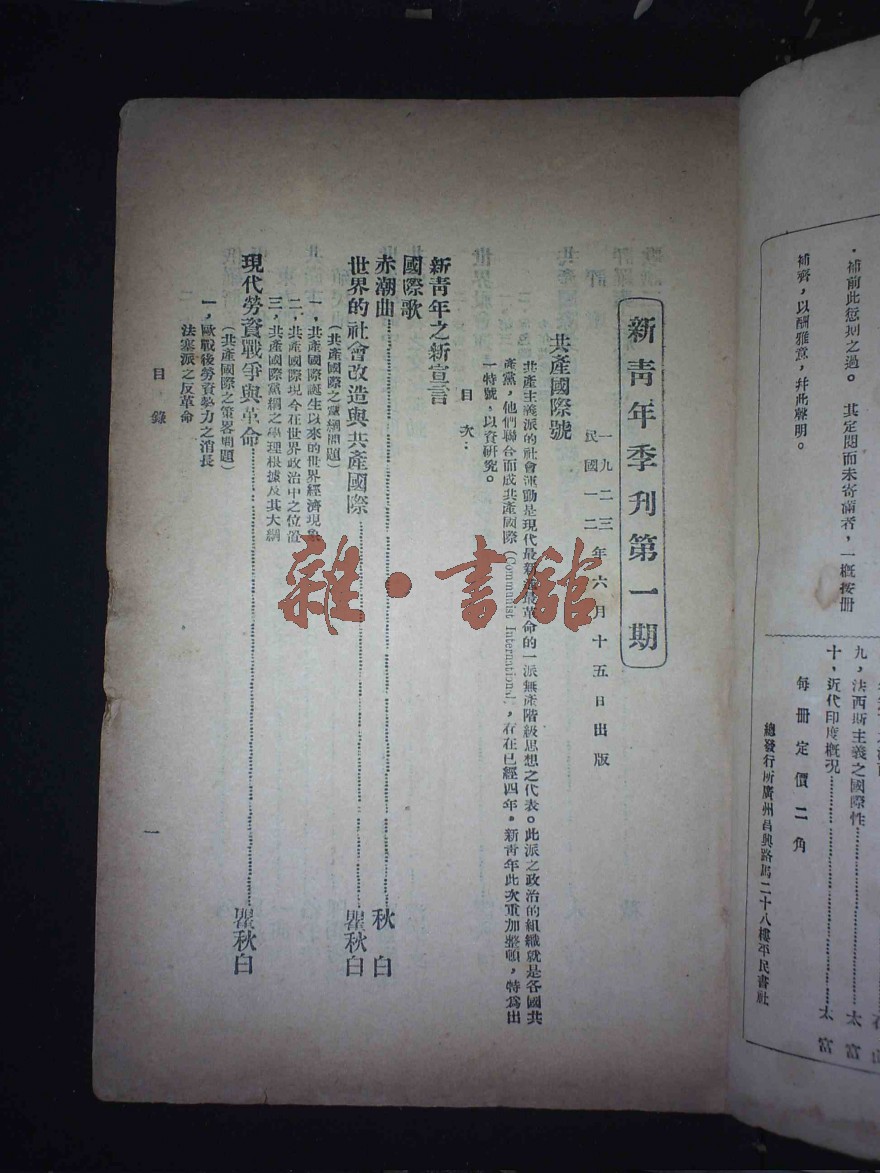 補前此愆期之過。其定閱而未寄齊者，一概按冊
補齊，以酬雅意，幷此聲明。
九、法西斯主義之國際性……太富
十、近代印度槪況……太富
每冊定價二角
總發行所廣州昌興路馬二十八樓平民書社
新靑年季刋第一期
一九二三年六月十五日出版
民國一二
共產國際號
共產主義派的社會運動是現代最新最革命的一派無產階級思想之代表。此派之政治的組織就是各國共
產黨，他們聯合而成共產國際(Communist International)，存在已經四年。新靑年此次重加整頓，特爲出
一特號，以資硏究。
目次：
新靑年之新宣言
國際歌
赤潮曲……秋白
世界的社會改造與共產國際……瞿秋白
(共產國際之黨綱問題)
一、共產國際誕生以來的世界經濟現象
二、共產國際現今在世界政治中之位置
三、共產國際黨綱之學理根據及其大綱
現代勞資戰爭與革命……瞿秋白
(共產國際之策畧問題)
一、歐戰後勞資勢力之消長
法塞派之反革命
目錄
一
雜·書館